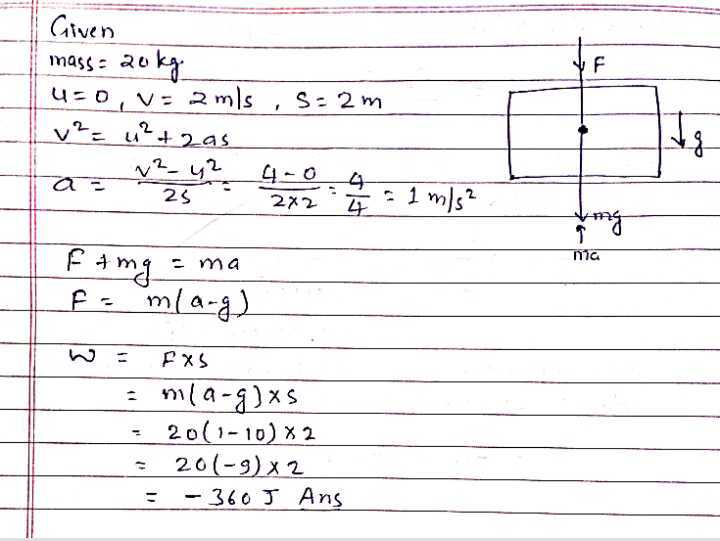 Given
mass = 20 kg
u = 0, v = 2 m/s, S = 2 m
v² = u² + 2as
a = (v² - u²)/2s = (4-0)/(2×2) = 4/4 = 1 m/s²
F
g
mg
ma
F + mg = ma
F = m(a-g)
W = F×S
= m(a-g)×s
= 20(1-10)×2
= 20(-9)×2
= -360 J Ans